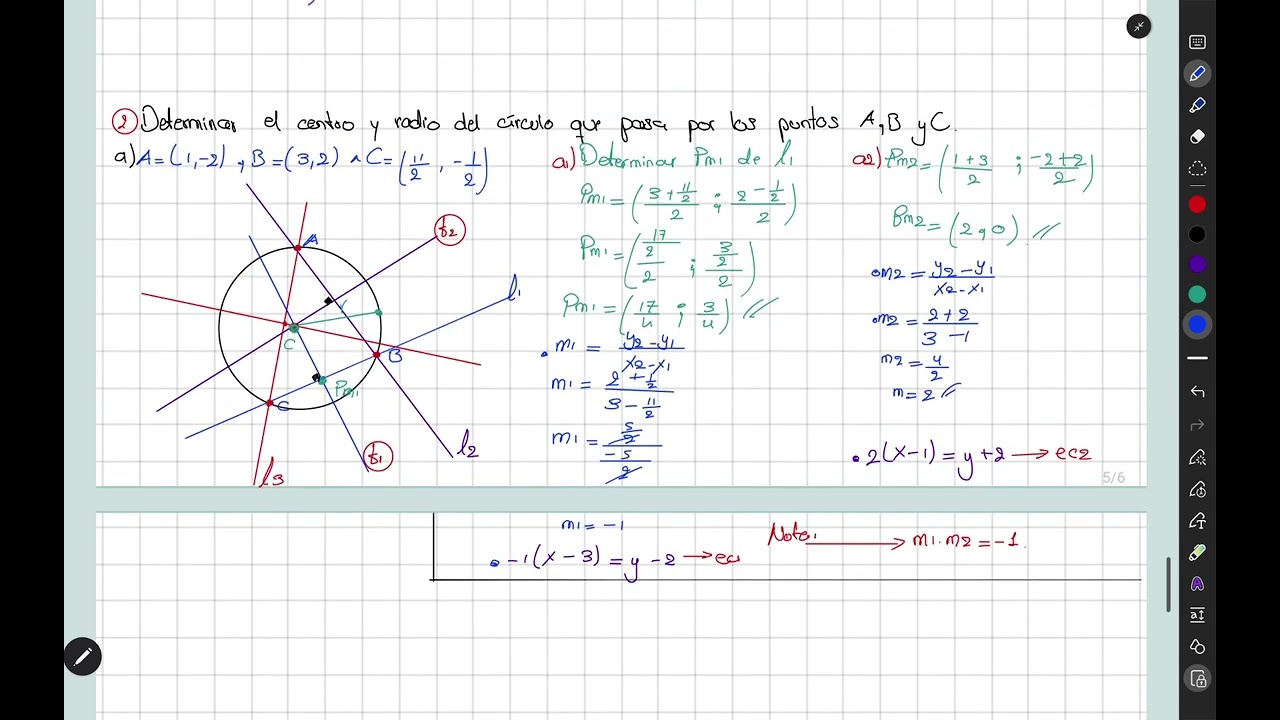 ② Determinar el centro y radio del círculo que pasa por los puntos A, B y C.
a) A = (1, -2) , B = (3, 2) ∧ C = (11/2 , -1/2)
A
B
C
C
Pm1
l1
l2
l3
t1
t2
a1) Determinar Pm1 de l1
Pm1 = ((3 + 11/2)/2 ; (2 - 1/2)/2)
Pm1 = ((17/2)/2 ; (3/2)/2)
Pm1 = (17/4 ; 3/4) //
• m1 = (y2 - y1)/(x2 - x1)
m1 = (2 + 1/2)/(3 - 11/2)
m1 = (5/2)/(-5/2)
m1 = -1
• -1(x - 3) = y - 2 → ec1
a2) Pm2 = ((1+3)/2 ; (-2+2)/2)
Pm2 = (2, 0) //
• m2 = (y2 - y1)/(x2 - x1)
• m2 = (2 + 2)/(3 - 1)
m2 = 4/2
m = 2 //
• 2(x - 1) = y + 2 → ec2
5/6
Nota: → m1 . m2 = -1.